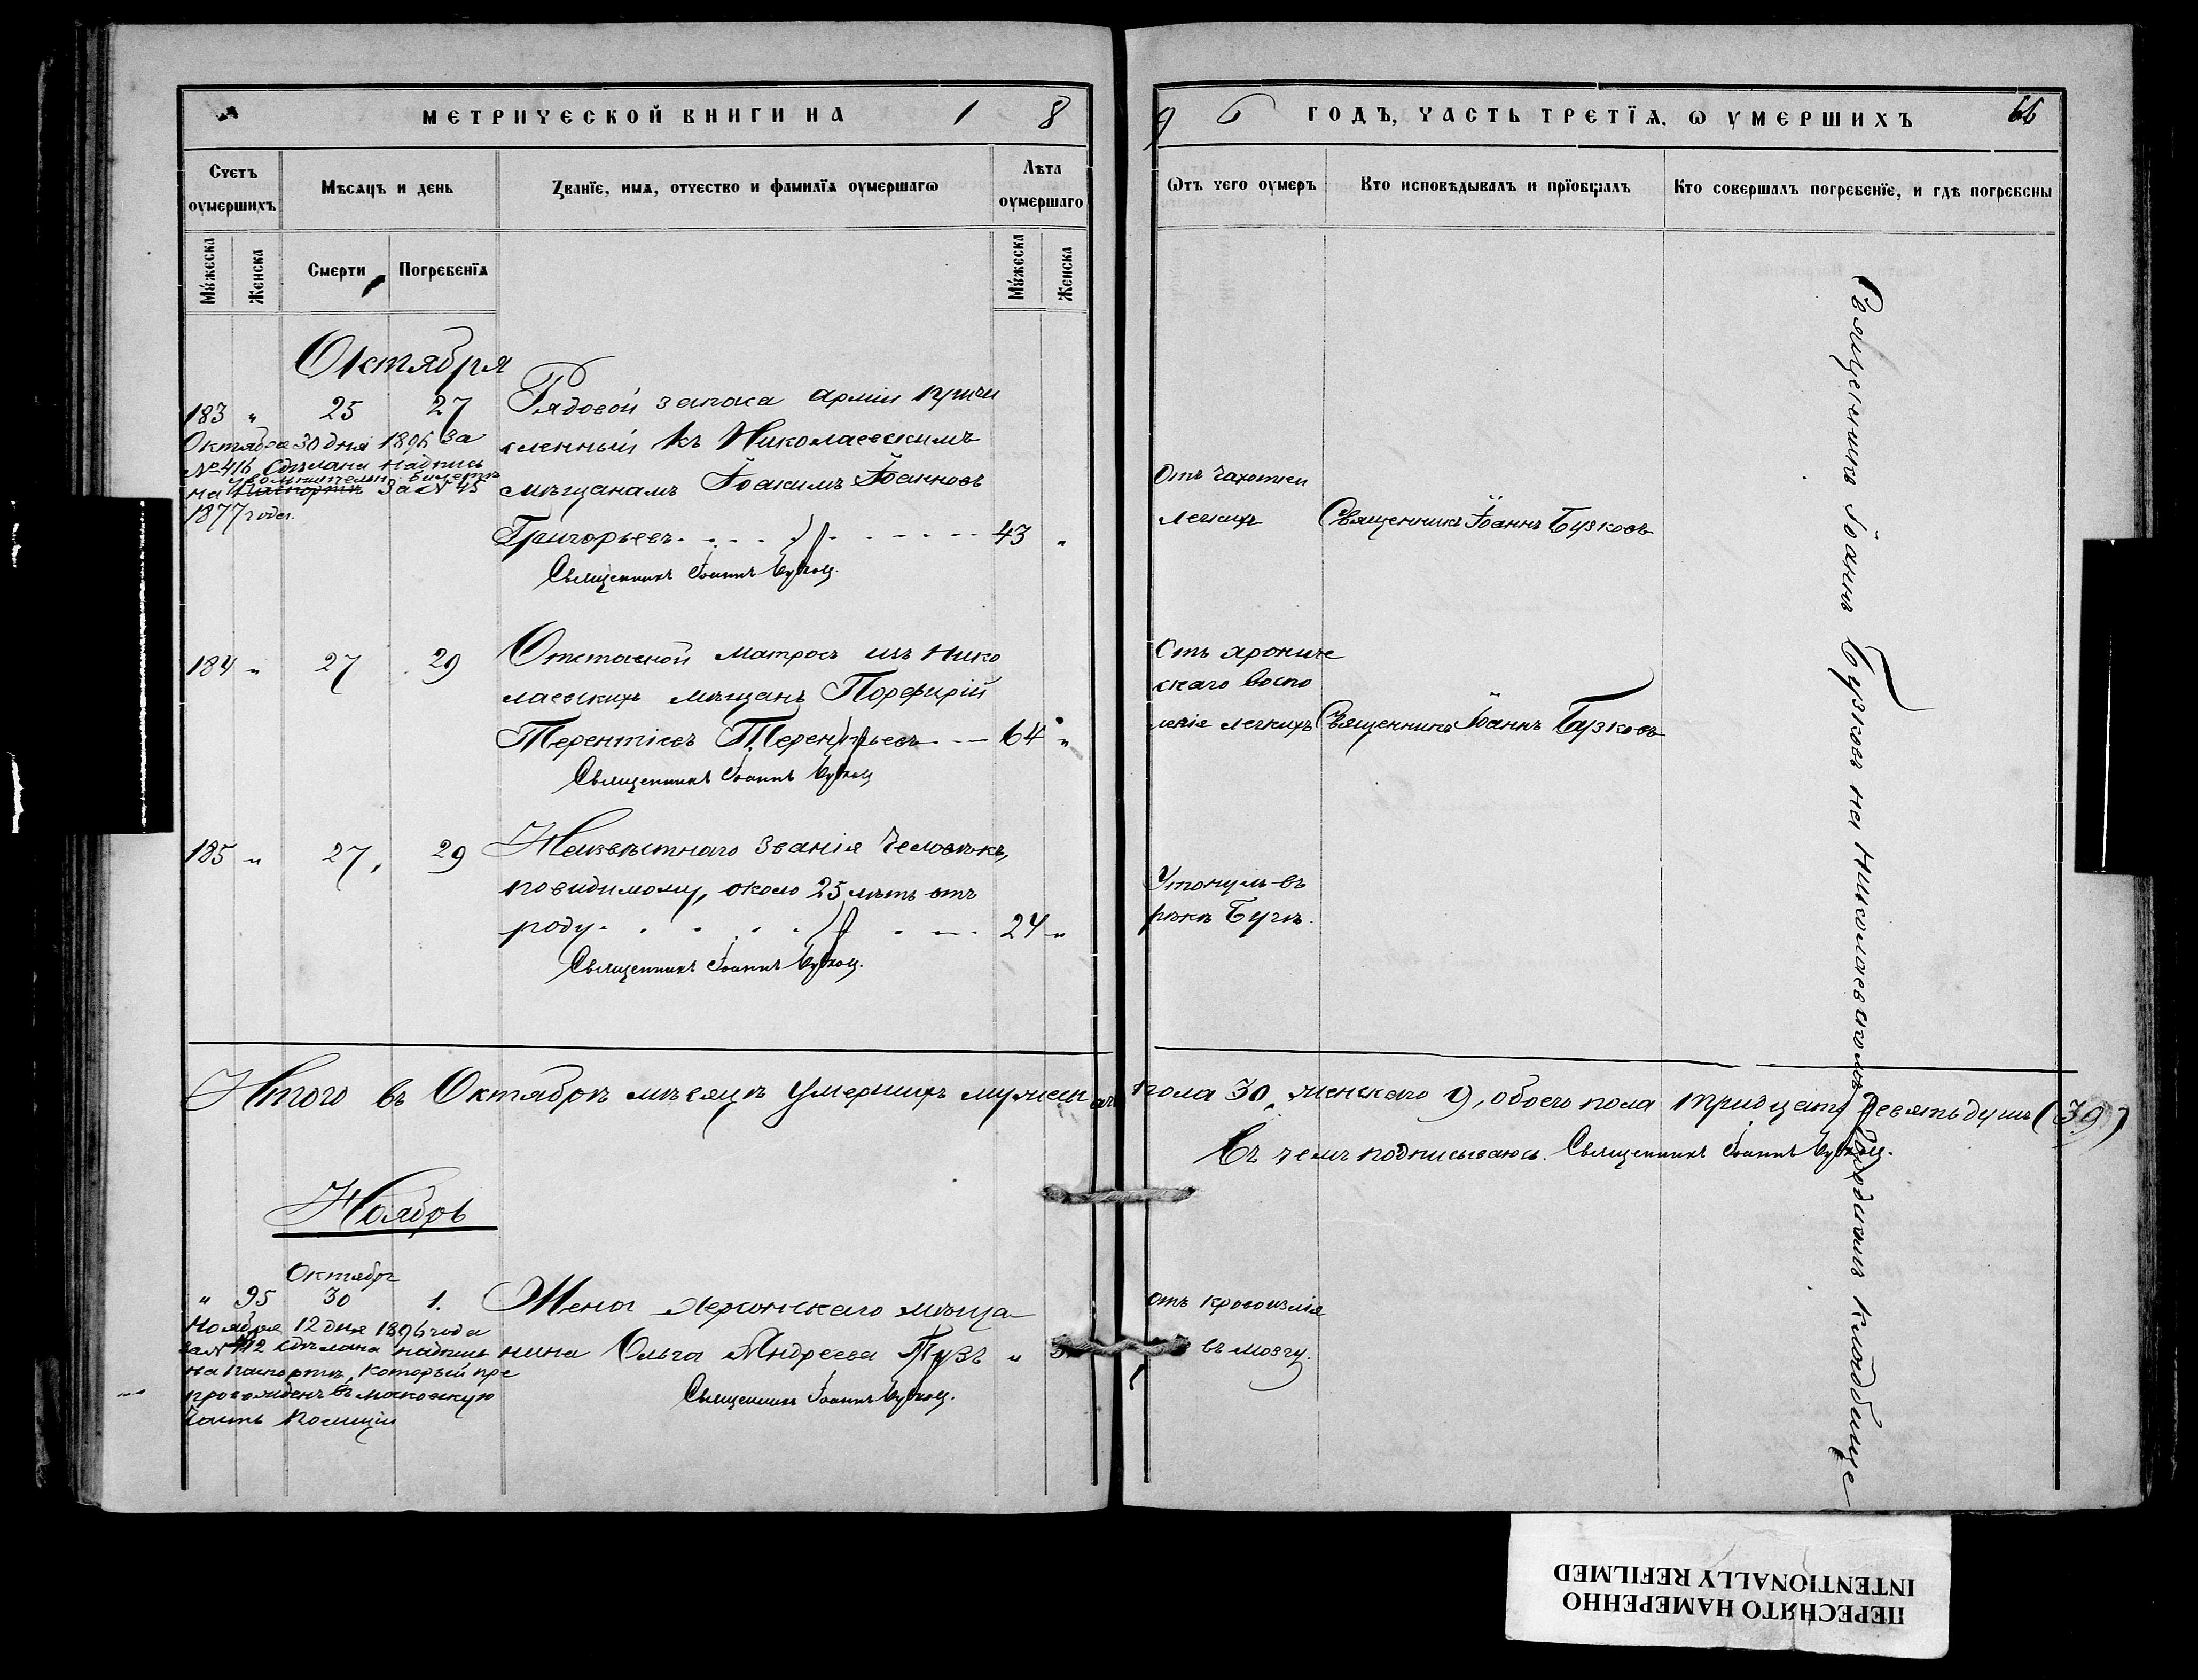 МЕТРИЧЕСКОЙ КНИГИ НА 1 8
9 6 ГОДЪ, ЧАСТЬ ТРЕТЇѦ, Ѡ УМЕРШИХЪ 66
Счетъ оумершихъ
Мѣсѧцъ и день
Званїе, имѧ, отчество и фамилїѧ оумершагѡ
Лѣта оумершаго
Ѿтъ чего оумеръ
Кто исповѣдывалъ и прїобщалъ
Кто совершалъ погребенїе, и гдѣ погребены
Мужеска
Женска
Смерти
Погребенїѧ
Мужеска
Женска
Октября
183 " 25 27 Рядовой запаса арміи причи
сленный къ Николаевскимъ
мѣщанамъ Іоакимъ Іоанновъ
Григорьевъ 43 "
Священникъ Іоаннъ Бузков.
Октября 30 дня 1896 за
№ 416 сдѣлана надпись
увольнительн. билетѣ
на паспортѣ За № 45
1877 года.
Отъ чахотки
легкихъ
Священникъ Іоаннъ Бузковъ
184 " 27 29 Отставной матросъ изъ Нико
лаевскихъ мѣщанъ Порфирій
Терентіевъ Терентьевъ 64 "
Священникъ Іоаннъ Бузков
Отъ хрониче
скаго воспа
ленія легкихъ
Священникъ Іоаннъ Бузковъ
185 " 27 29 Неизвѣстнаго званія человѣкъ,
повидимому, около 25 лѣтъ отъ
роду 24 "
Священникъ Іоаннъ Бузков.
Утонулъ въ
рѣкѣ Бугѣ.
Священникъ Іоаннъ Бузковъ на Николаевскомъ Городскомъ кладбище
Итого въ Октябрѣ мѣсяцѣ умершихъ мужескаго пола 30, женскаго 9, обоего пола тридцать девять душъ (39)
Въ чемъ подписываюсь. Священникъ Іоаннъ Бузков.
Ноябрь
Октября
" 95 30 1. Жена Херсонскаго мѣща
нина Ольга Андреева Тузъ "
Священникъ Іоаннъ Бузков.
Ноября 12 дня 1896 года
за № 412 сдѣлана надпись
на паспортѣ, который пре
провожденъ въ московскую
часть полиціи
отъ кровоизлія
въ мозгу.
ПЕРЕСНЯТО НАМЕРЕННО
INTENTIONALLY REFILMED